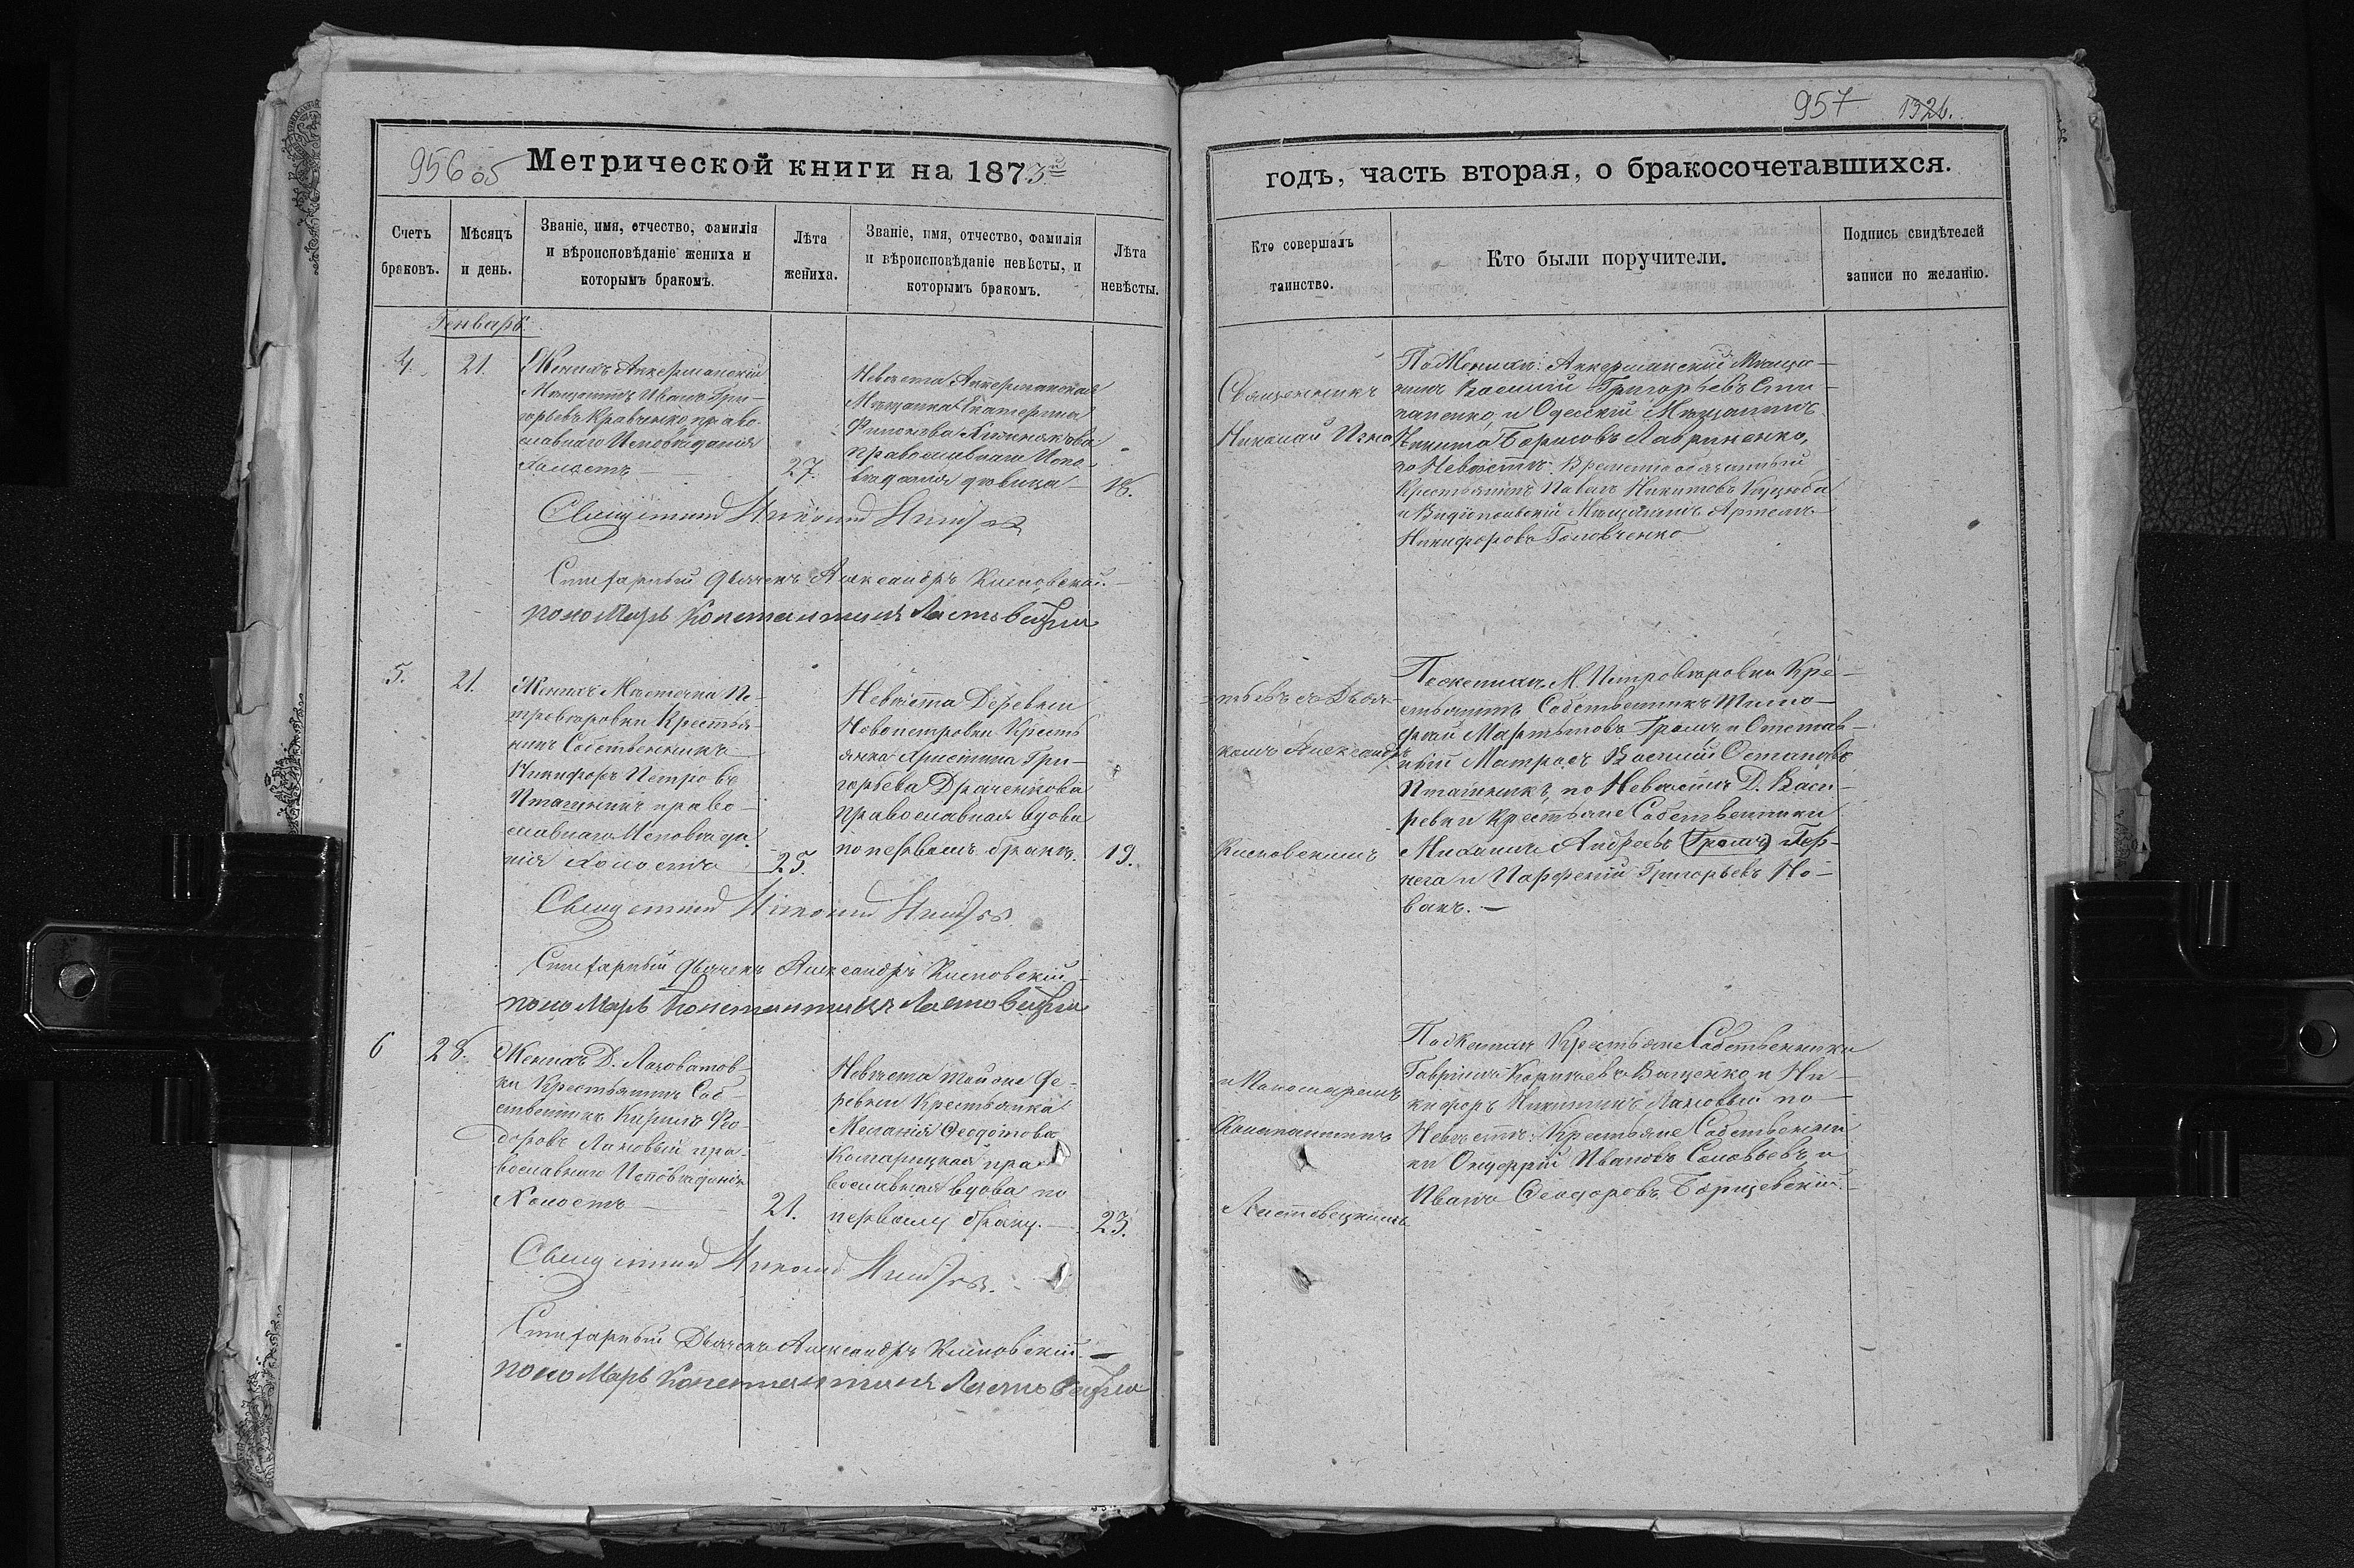 956 об
Метрической книги на 1873й
957 1326.
годъ, часть вторая, о бракосочетавшихся.
Счетъ
браковъ.
Мѣсяцъ
и день.
Званіе, имя, отчество, фамилія
и вѣроисповѣданіе жениха и
которымъ бракомъ.
Лѣта
жениха.
Званіе, имя, отчество, фамилія
и вѣроисповѣданіе невѣсты, и
которымъ бракомъ.
Лѣта
невѣсты.
Кто совершалъ
таинство.
Кто были поручители.
Подпись свидѣтелей
записи по желанію.
Генварь
4.
21.
Женихъ Аккерманскій
Мѣщанинъ Иванъ Гри-
горьевъ Кравченко право-
славнаго Исповѣданія
Холостъ
27.
Невѣста Аккерманская
Мѣщанка Екатерина
Филонова
православнаго Испо-
вѣданія дѣвица
18.
Священникъ
Николай
По Женихѣ: Аккерманскій Мѣща-
нинъ Василій Григорьевъ Сти-
паненко, и Одесскій Мѣщанинъ
Никита Борисовъ Лавриненко,
по Невѣстѣ: Временнообязанный
Крестьянинъ Павелъ Никитовъ Куцюба
и Видіпольскій Мѣщанинъ Артемъ
Никифоровъ Головченко
Священникъ Николай
Стихарный дьячекъ Александръ Кисловскій.
поноМарь Константинъ Ластовецкій
5.
21.
Женихъ Мѣстечка Пе-
тровѣровки Крестья-
нинъ Собственникъ
Никифоръ Петровъ
Пташникъ право-
славнаго Исповѣда-
нія Холостъ
25.
Невѣста Деревни
Новопетровки Кресть
янка Христина Гри-
горьева Драченкова
Православная вдова
по первомъ бракѣ.
19.
съ Дьяч-
комъ Александр
Кисловскимъ
По женихѣ М. Петровѣровки Кре-
стьянинъ Собственникъ Тимо-
фей Мартыновъ Громъ и Отстав-
ный Матросъ Василій Остаповъ
Пташникъ, по Невѣстѣ Д. Васи-
ревки Крестьяне Собственники
Михаилъ Андреевъ (Громъ) Гер-
нега и Парфеній Григорьевъ Но-
вакъ.
Священникъ Николай
Стихарный дьячекъ Александръ Кисловскій
поноМарь Константинъ Ластовецкій
6
28.
Женихъ Д. Лозоватов-
ки Крестьянинъ Соб-
ственникъ Кирилъ Фео-
доровъ Лановый пра-
вославнаго Исповѣданія
Холостъ
21.
Невѣста тойже де-
ревни Крестьянка
Меланія Феодотова
Комарицкая пра-
вославная вдова по
первому браку.
23.
и Пономаремъ
Константинъ
Ластовецкимъ
По Женихѣ Крестьяне Собственники
Гавріилъ Корнѣевъ Ващенко и Ни-
кифоръ Никитинъ Лановый по
Невѣстѣ: Крестьяне Собственни-
ки Онуфрій Ивановъ Соловьевъ и
Иванъ Феодоровъ Борщевскій.
Священникъ Николай
Стихарный Дьячекъ Александръ Кисловскій.
поноМарь Константинъ Ластовецкій